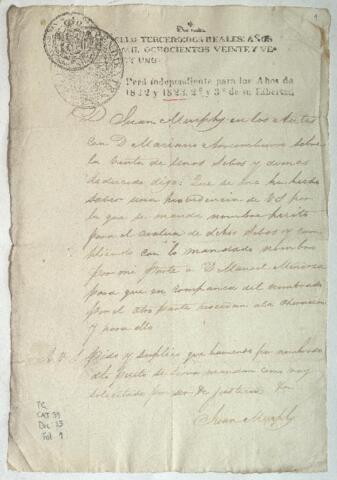 SELLO TERCERO DOS REALES AÑOS
MIL OCHOCIENTOS VEINTE Y VE
Y UNO
Perú independiente para los Años de
1822 y 1823. 2º y 3º de su Libertad
D. Juan Murphy en los Autos
con D. Mariano sobre
la venta de unos Sebos y demas
deducido digo: Que se me ha hecho
saber una providencia de VS por
la que se manda nombrar perito
para el avaluo de dichos Sebos y cum
pliendo con lo mandado nombro
por mi parte a D. Manuel Mendoza
para que en compañia del nombrado
por el otra parte procedan a la
y para ello
A V. S. Pido y suplico que haviendo por nombrado
dho Perito se sirva mandar como llevo
solicitado por ser de justicia
Juan Murphy
TC
CAT 39
Doc 13
Fol. 1
1